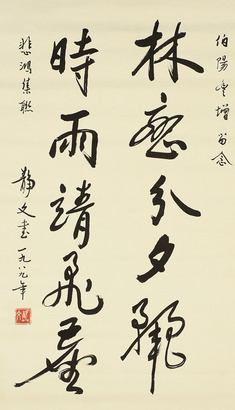 伯陽 增留念
林 分夕
時雨靖飛塵
悲鴻集聯
靜文書一九八九年